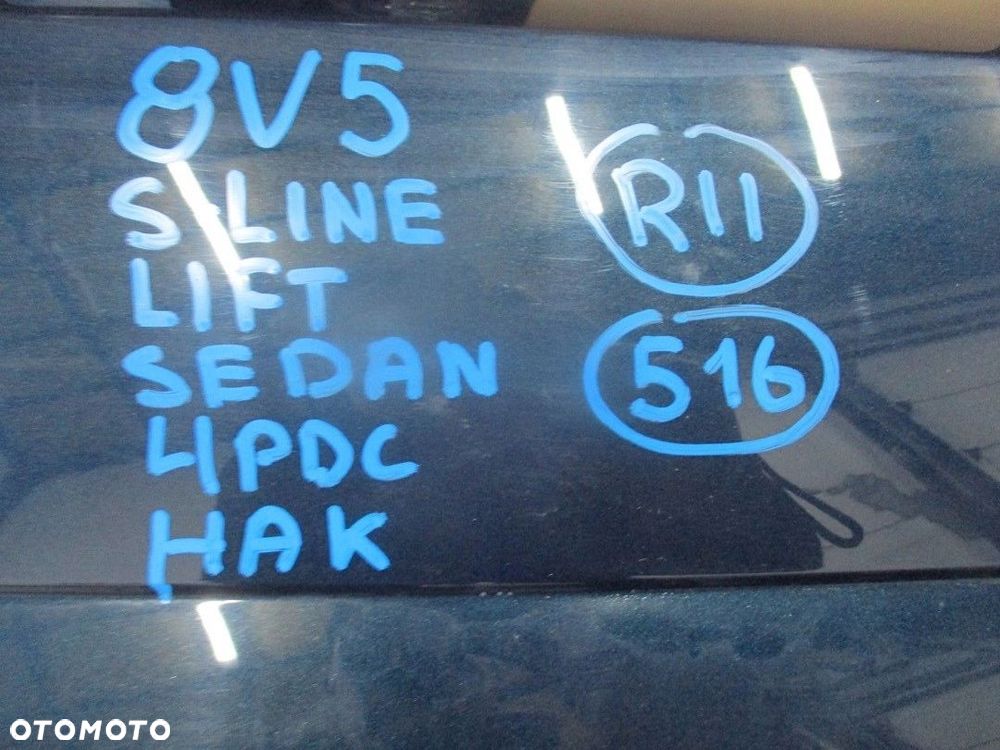 8V5
S-LINE
LIFT
SEDAN
4PDC
HAK
R11
516
OTOMOTO